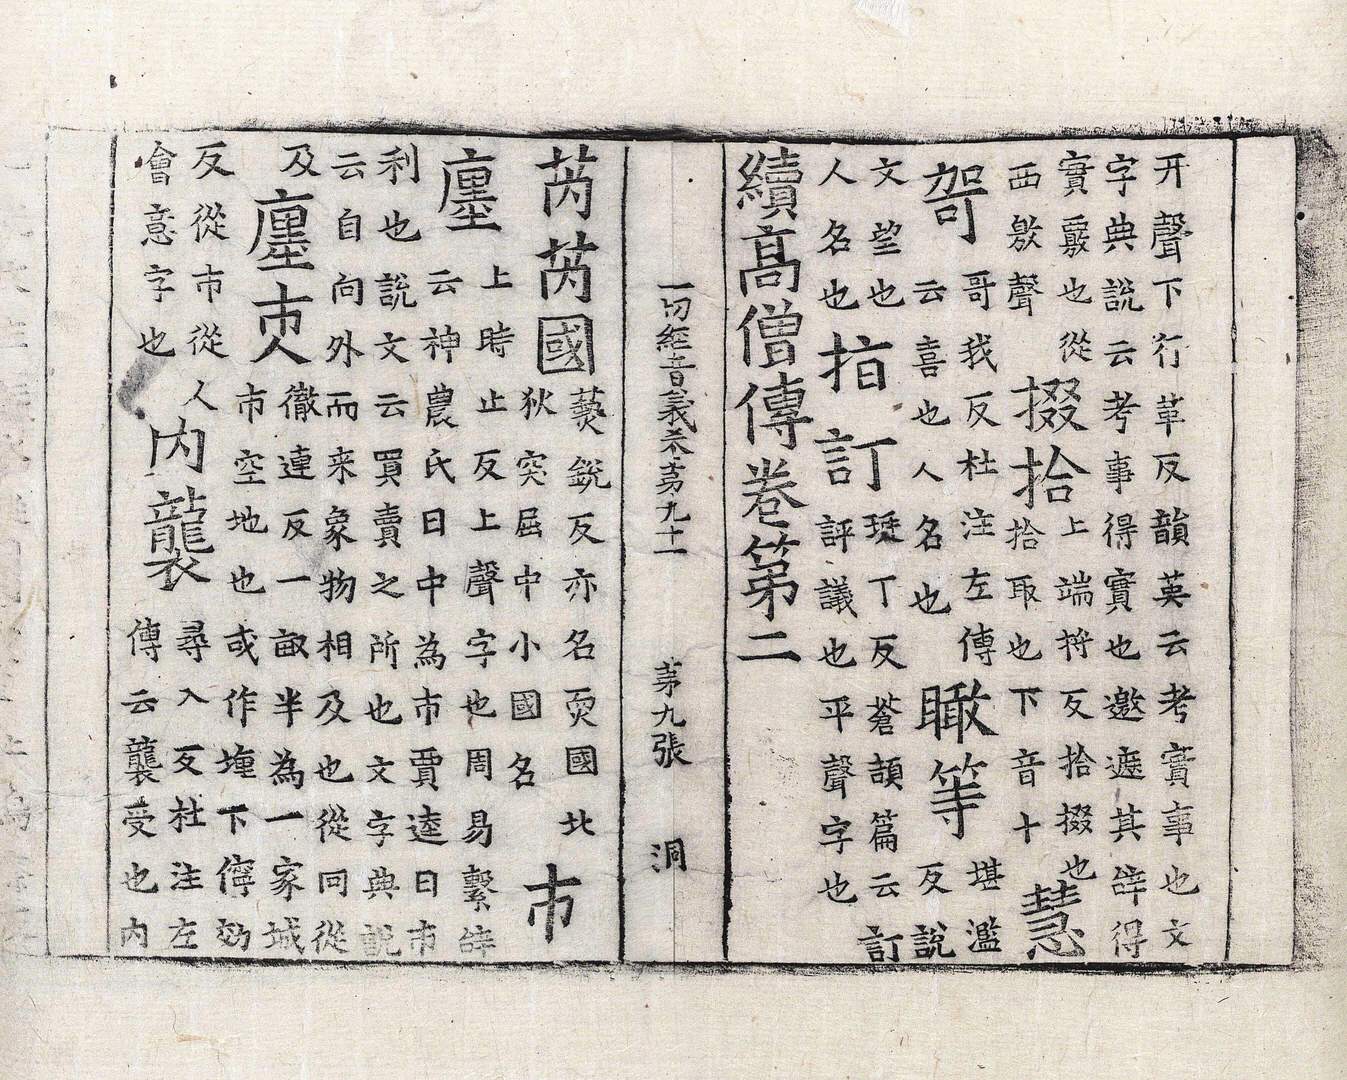 开聲下行革反韻英云考實事也文
字典說云考事得實也邀遮其辝得
實覈也從
西敫聲
掇拾
上端捋反拾掇也
拾取也下音十
慧
哿
哥我反杜注左傳
云喜也人名也
瞰等
堪濫
反說
文望也
人名也
指訂
珽丁反蒼頡篇云訂
評議也平聲字也
續高僧傳卷第二
一切經音義卷第九十一 第九張 洞
芮芮國
爇銳反亦名耎國北
狄突屈中小國名
市
廛
上時止反上聲字也周易繫辝
云神農氏日中為市賈逵曰市
利也說文云買賣之所也文字典說
云自向外而来象物相及也從冋從
及
廛𠆴
徹連反一畝半為一家城
市空地也或作㙻下儜効
反從市從人
會意字也
內襲
尋入反杜注左
傳云襲受也內